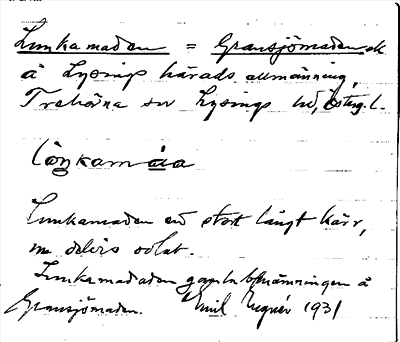 Lunkamaden = Gransjömaden
å Lysings härads allmänning,
Trehörna sn Lysings hd, Österg. l.
Lunkamaden ett stort långt kärr,
nu delvis odlat.
Lunkamaden gamla benämningen å
Gransjömaden. Emil 1931